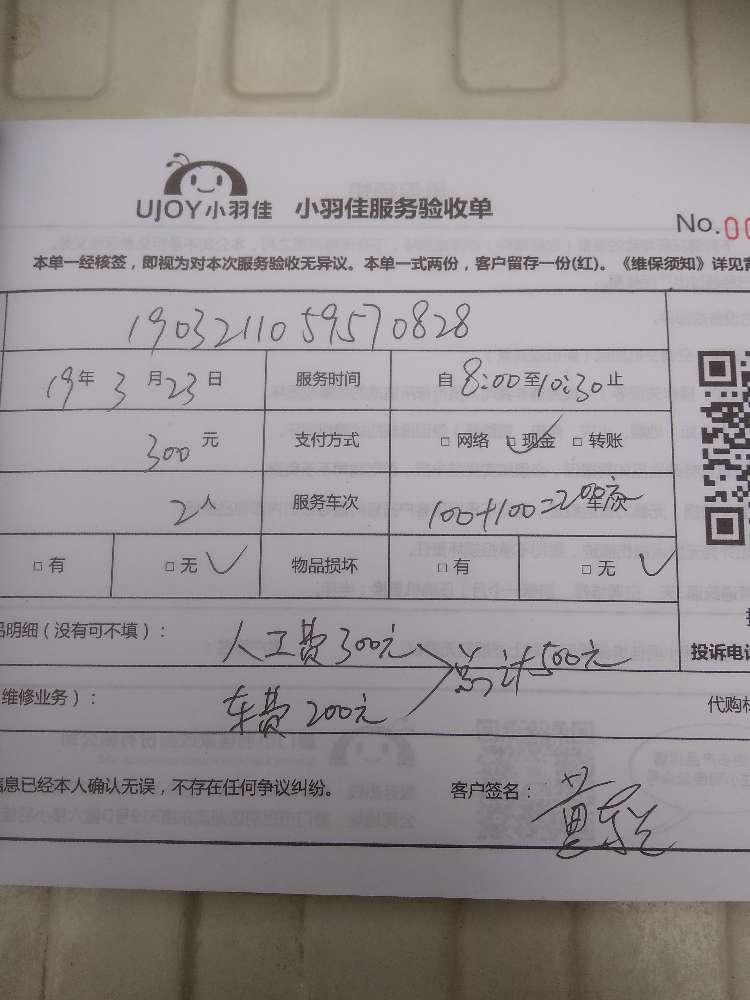 UJOY小羽佳 小羽佳服务验收单
No.00
本单一经核签，即视为对本次服务验收无异议。本单一式两份，客户留存一份(红)。《维保须知》详见背
190321105957 0828
19年3月23日 服务时间 自8:00至10:30止
300元 支付方式 □网络 ☑现金 □转账
2人 服务车次 100+100=200 车次
□有 □无 ✓ 物品损坏 □有 □无 ✓
品明细（没有可不填）： 人工费300元 总计500元
投诉电话
维修业务）： 车费200元
代购材
信息已经本人确认无误，不存在任何争议纠纷。 客户签名：